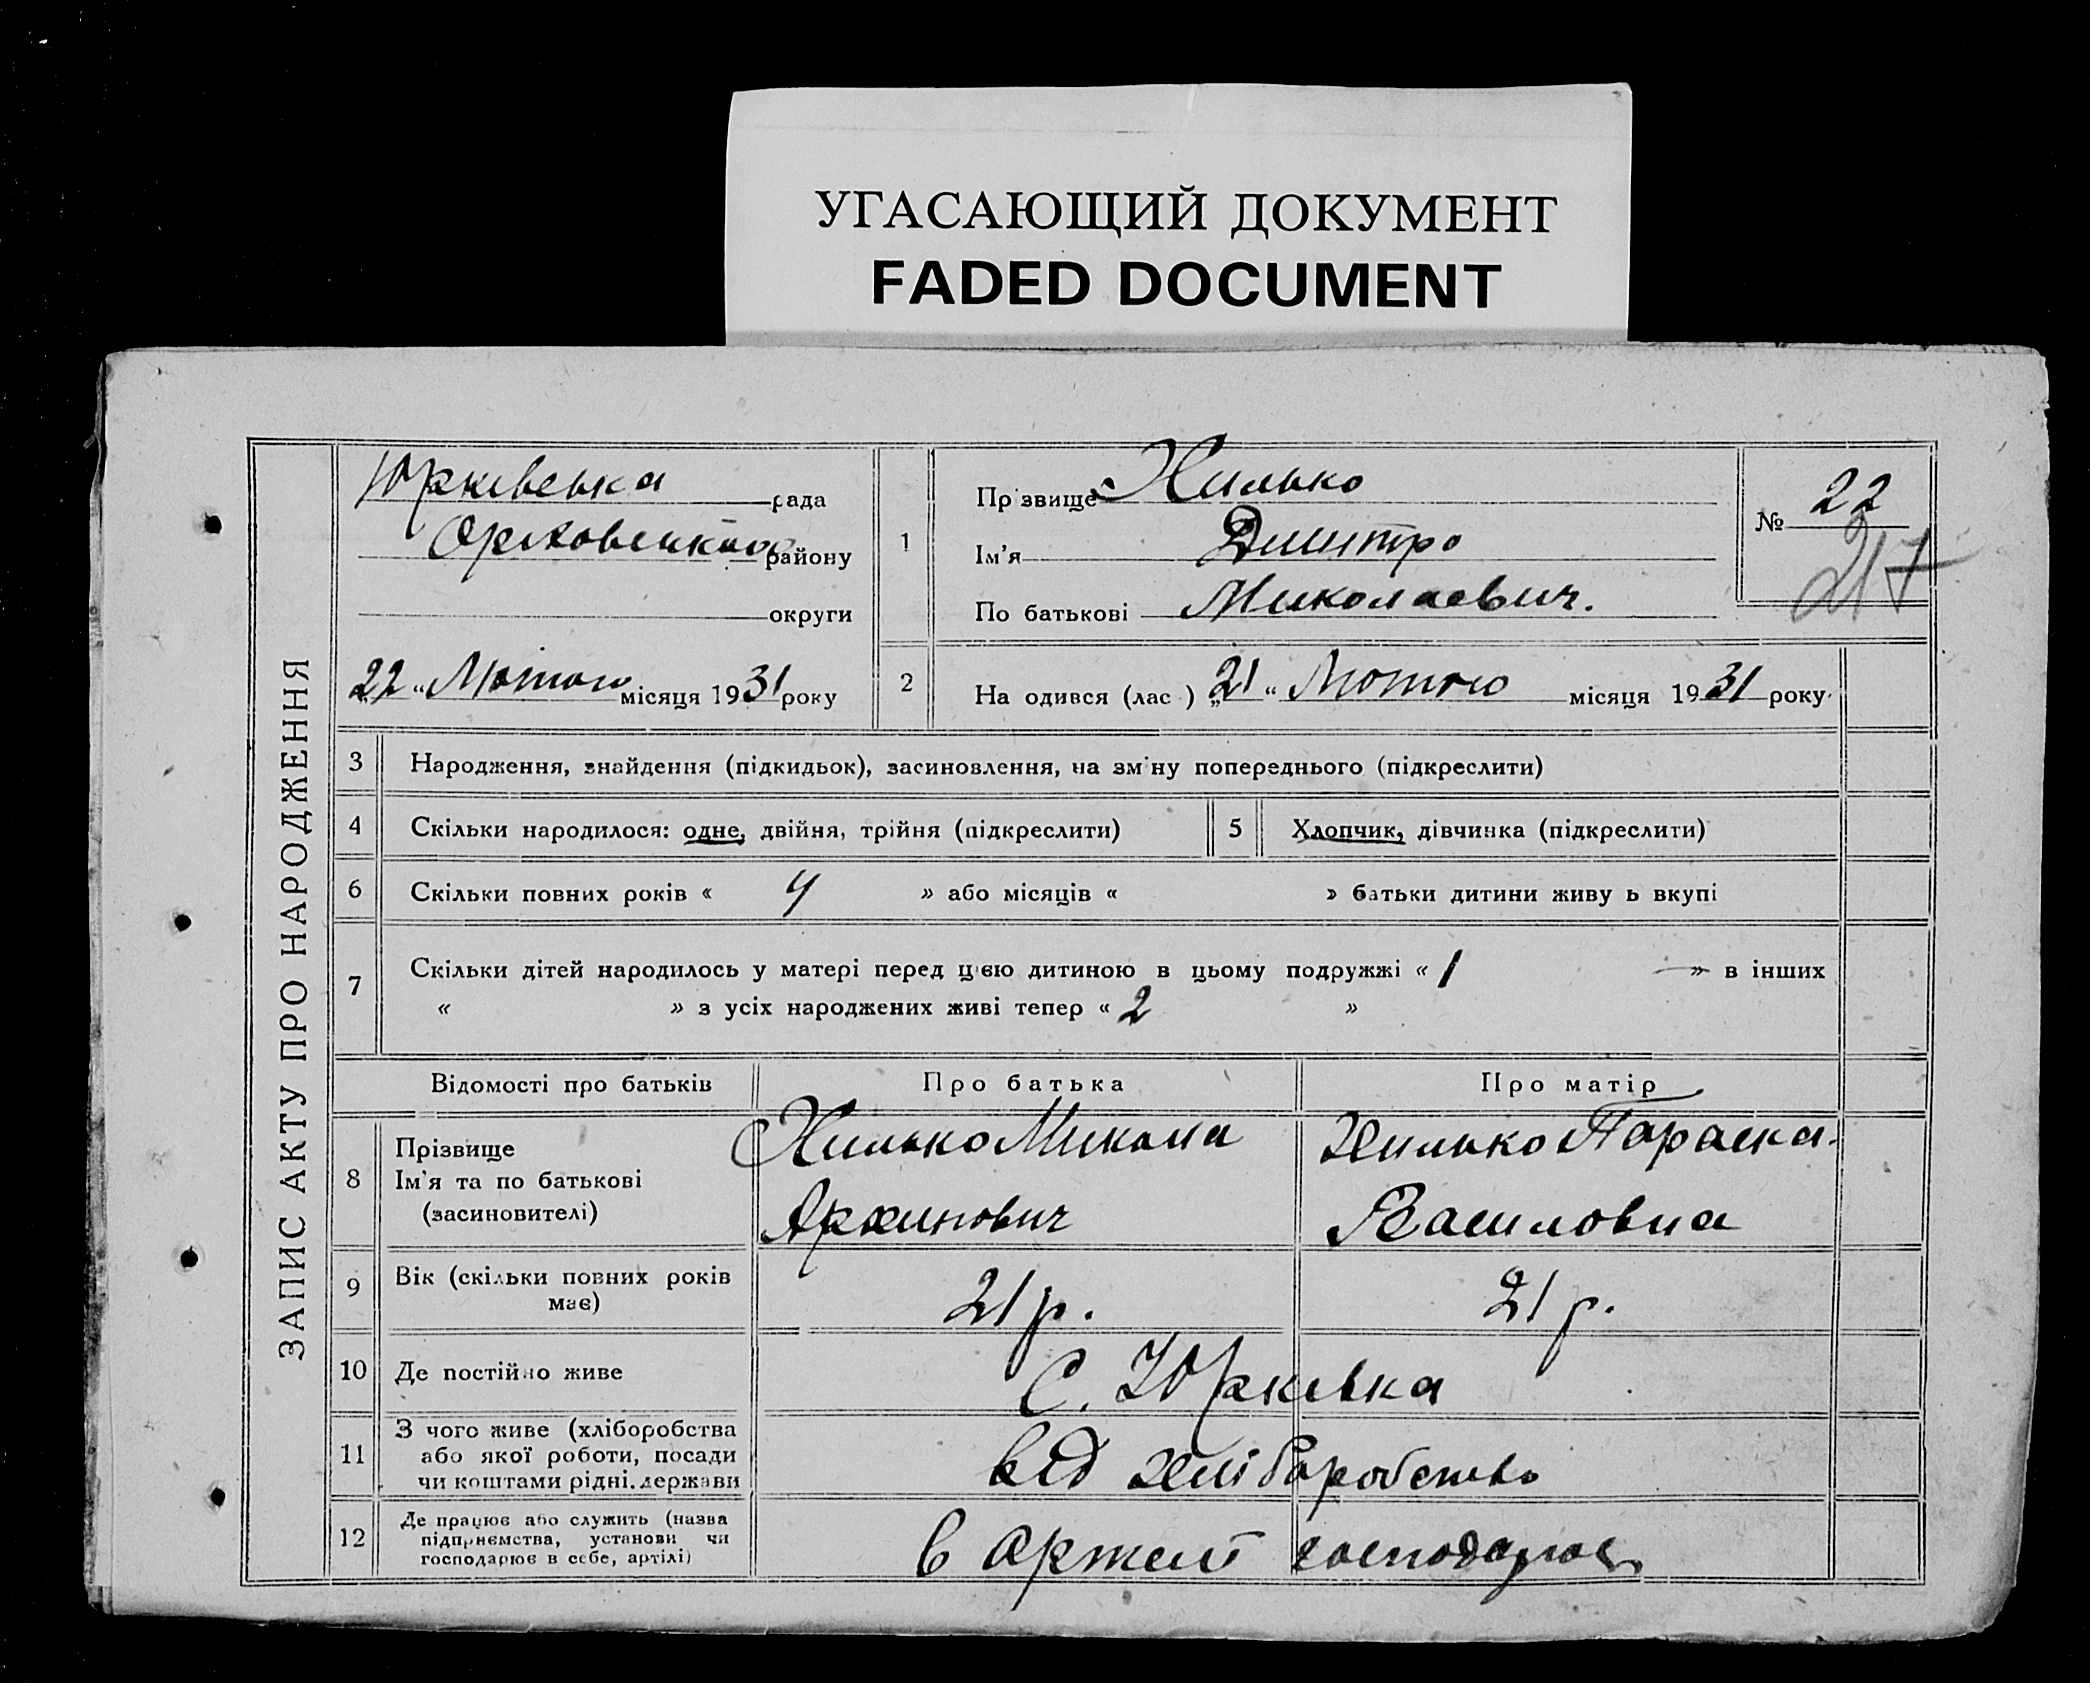 УГАСАЮЩИЙ ДОКУМЕНТ
FADED DOCUMENT
ЗАПИС АКТУ ПРО НАРОДЖЕННЯ
Юрківська рада
Оріховського району
округи
„22“ Лютого місяця 1931 року
1
Пр звище Хилько
Ім’я Дмитро
По батькові Миколаевич.
№ 22
217
2
На одився (лас ) „21“ Лютого місяця 1931 року
3 Народження, знайдення (підкидьок), засиновлення, на зм ну попереднього (підкреслити)
4 Скільки народилося: одне, двійня, трійня (підкреслити) 5 Хлопчик, дівчинка (підкреслити)
6 Скільки повних років « 4 » або місяців « » батьки дитини живу ь вкупі
7 Скільки дітей народилось у матері перед цією дитиною в цьому подружжі « 1 » в інших
« » з усіх народжених живі тепер « 2 »
Відомості про батьків Про батька Про матір
8 Прізвище
Ім’я та по батькові
(засиновителі)
Хилько Микола
Архипович
Хилько Параска
Василовна
9 Вік (скільки повних років
має)
21 р. 21 р.
10 Де постійно живе С. Юрківка
11 З чого живе (хліборобства
або якої роботи, посади
чи коштами рідні, держави
від хліборобство
12 Де працює або служить (назва
підприємства, установи чи
господарює в себе, артілі)
в артелі господарює